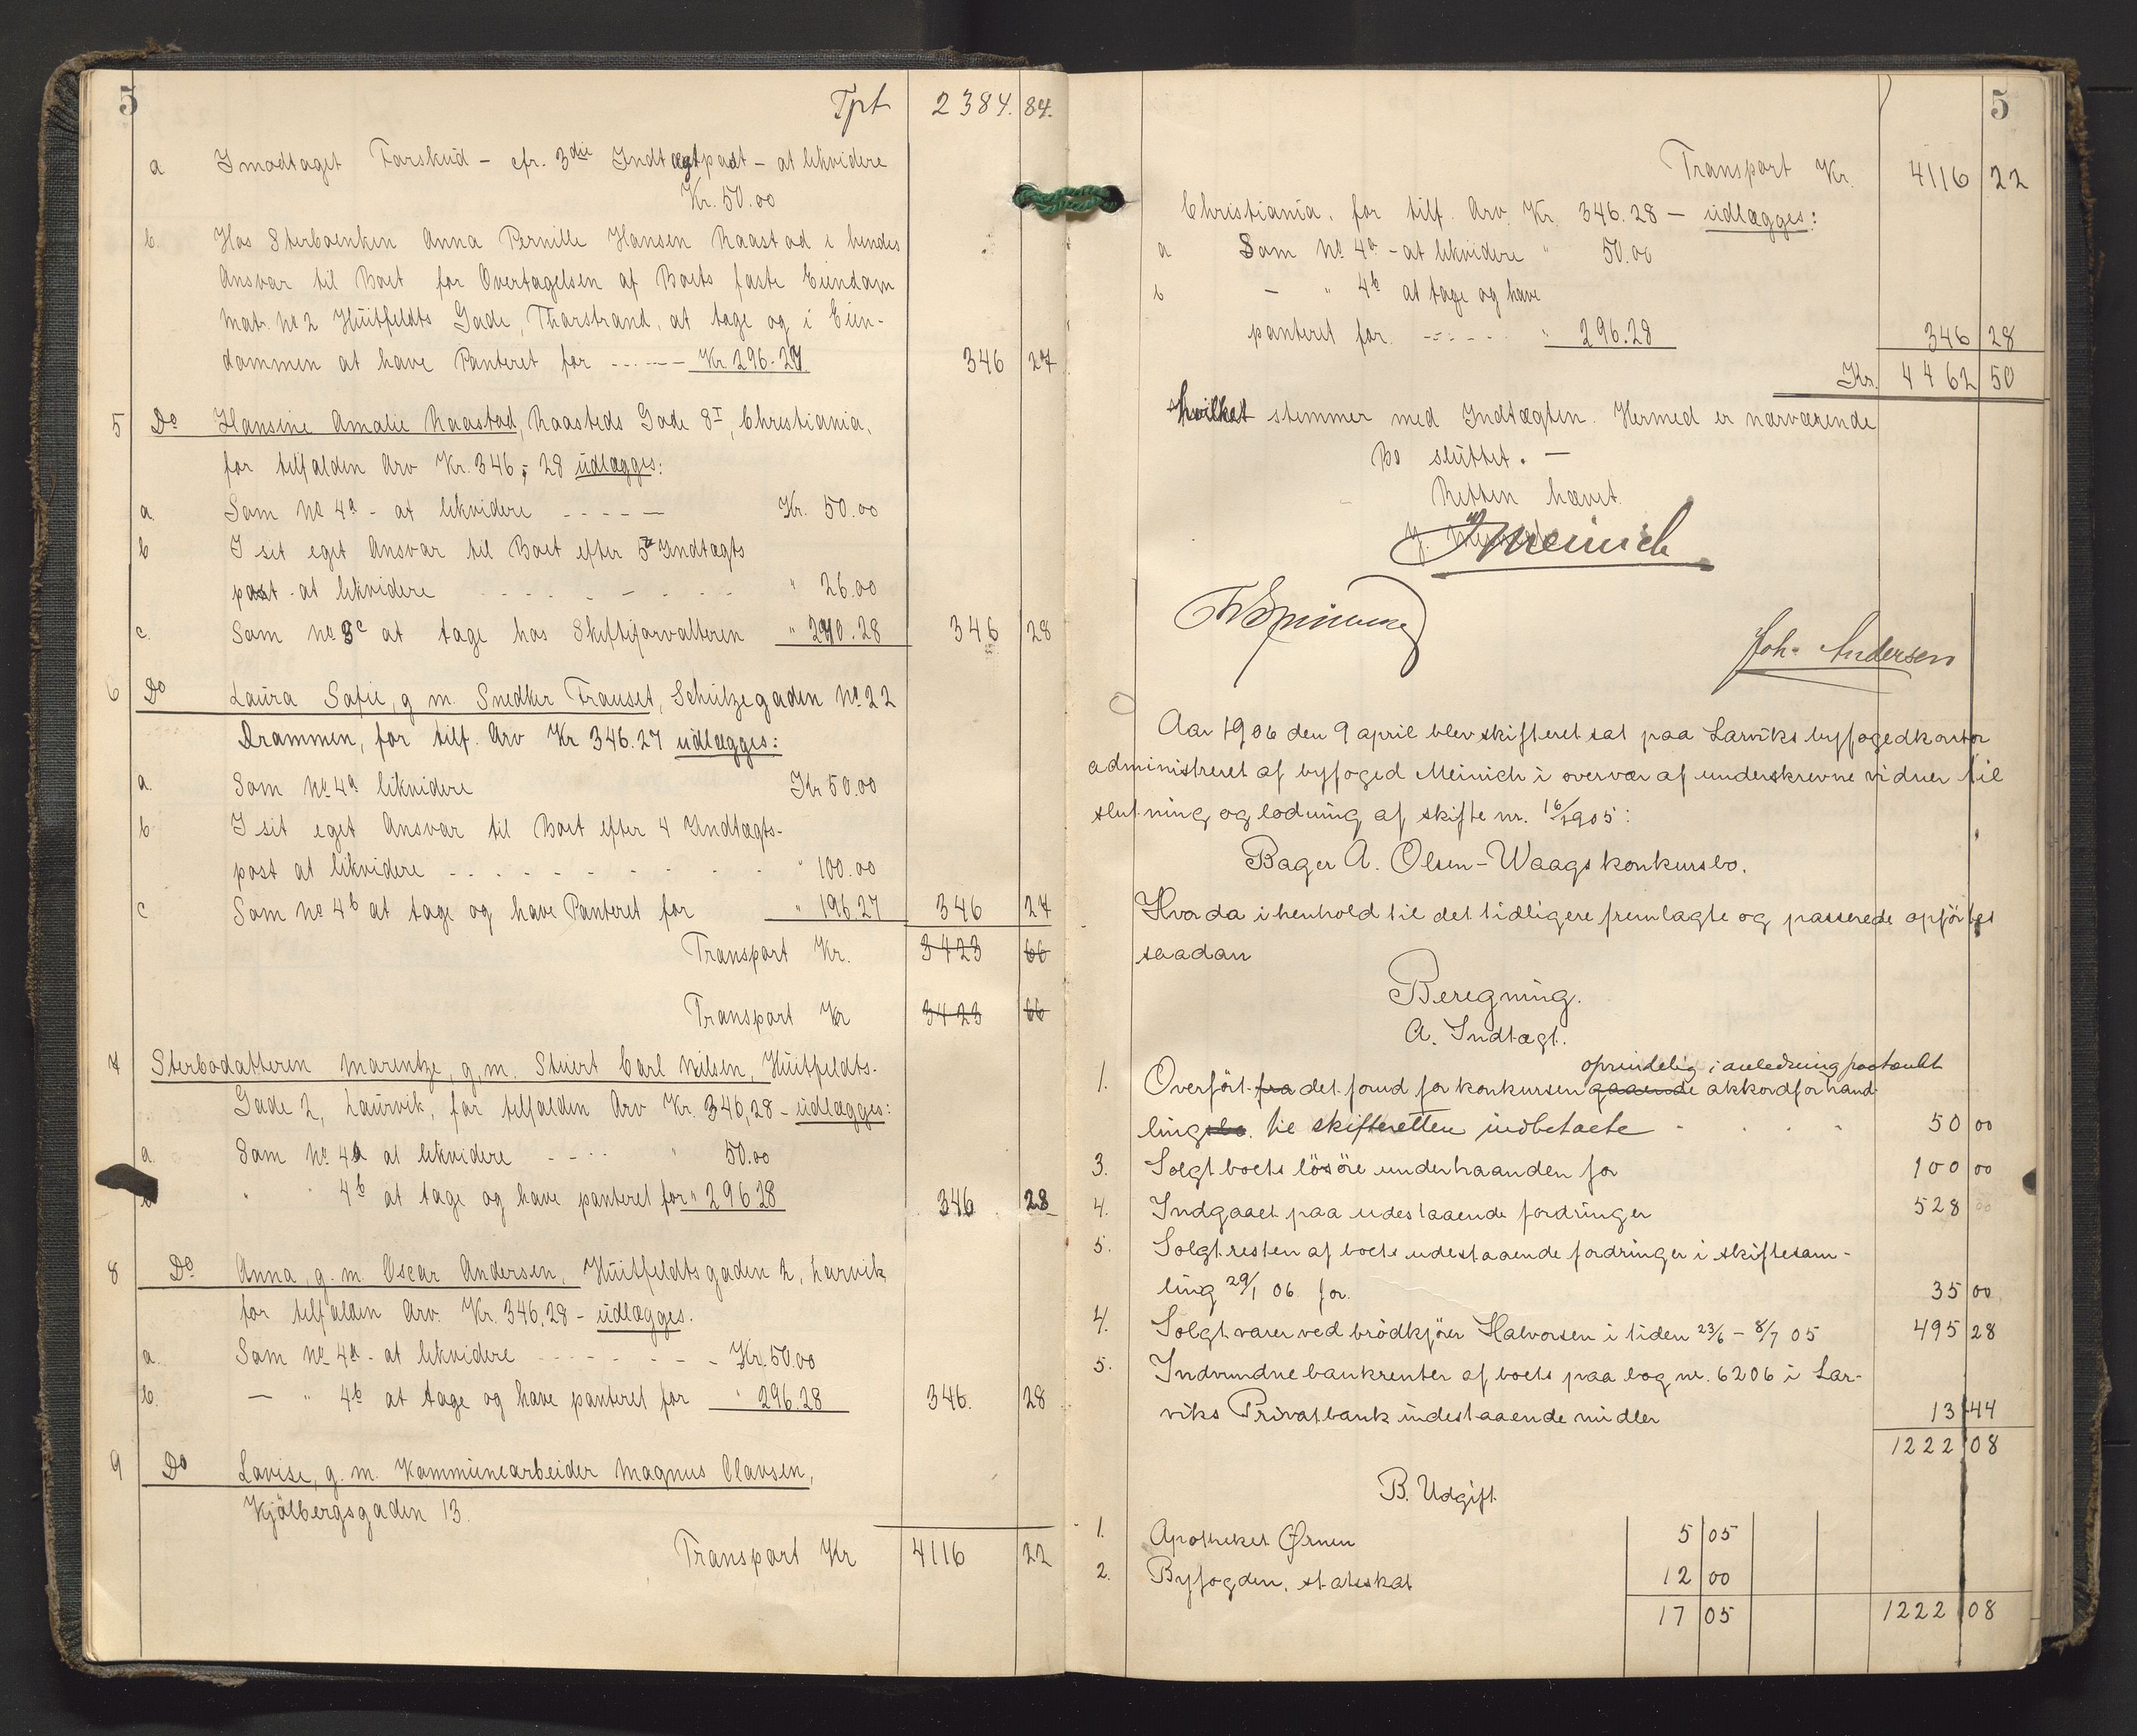 5
Tpt 2384. 84.
a I modtaget Forskud - cfr. 3die Indtægtpost - at likvidere
Kr. 50.00
b. Hos Sterboenken Anna Pernille Hansen Raastad i hendes
Ansvar til Boet for Overtagelsen af Boets faste Eiendom
Matr. No 2 Huitfeldts Gade, Thorstrand, at tage og i Eien-
dommen at have Panteret for ------ Kr 296.27 346 27
5 Do Hansine Amalie Raastad, Raasteds Gade 8I, Christiania,
for tilfalden Arv Kr. 346,28 udlægges:
a. Som No 4a - at likvidere ----- Kr. 50.00
b I sit eget Ansvar til Boet efter 5te Indtægts
post - at likvidere - - - - - - - " 26.00
c. Som No 3c at tage hos Skifteforvalteren " 270.28 346 28
6 Do Laura Sofie, g m. Snedker Frauset, Schultzegaden No 22
Drammen, for tilf. Arv Kr 346.27 udlægges:
a. Som No 4a likvidere Kr 50.00
b I sit eget Ansvar til Boet efter 4 Indtægts-
post at likvidere - - - - - - - - " 100.00
c Som No 4b at tage og have Panteret for " 196.27 346 27
Transport Kr. 3423 66
Transport Kr 3423 66
7 Sterbodatteren Marentze, g, m. Stuert Carl Nilsen, Huitfeldts-
Gade 2, Laurvik, for tilfalden Arv Kr. 346,28 - udlægges:
a. Som No 4a at likvidere ---- " 50.00
b " " 4b at tage og have panteret for " 296.28 346 28
8 Do Anna, g. m. Oscar Andersen, Huitfeldtsgaden 2, Larvik
for tilfalden Arv. Kr. 346,28 - udlægges.
a. Som No 4a - at likvidere ------- Kr. 50.00
b. - " 4b at tage og have panteret for " 296.28 346. 28
9 Do Lovise, g. m. Kommunearbeider Magnus Olavsen,
Kjølbergsgaden 13.
Transport Kr 4116 22
5
Transport Kr. 4116 22
Christiania, for tilf. Arv. Kr. 346.28 - udlægges:
a Som No 4a - at likvidere " 50.00
b - " 4b at tage og have
panteret for. ----- " 296.28 346 28
Kr. 4462 50
hvilket stemmer med Indtægten. Hermed er nærværende
Bo sluttet. -
Retten hævet.
Meinich
Joh. Andersen
Aar 1906 den 9 april blev skifteret sat paa Larviks byfogedkontor
administreret af byfoged Meinich i overvær af underskrevne vidner til
slutning og lodning af skifte nr. 16/1905:
Bager A. Olsen-Waags konkursbo.
Hvorda i henhold til det tidligere fremlagte og passerede opførtes
saadan
Beregning.
A. Indtægt.
oprindelig i anledning paatænkt
1. Overført fra det forud for konkursen gaaende akkordforhand-
lingsbo. til skifteretten indbetaete - . . . 50 00
3. Solgt boets løsøre underhaanden for 100 00
4. Indgaaet paa udestaaende fordringer 528 00
5. Solgt resten af boets udestaaende fordringer i skiftesam-
ling 29/1 06 for. 35 00
4. Solgt varer ved brødkjører Halvorsen i tiden 23/6 - 8/7 05 495 28
5. Indvundne bankrenter af boets paa bog nr. 6206 i Lar-
viks Privatbank indestaaende midler 13 44
1222 08
B. Udgift.
1. Apotheket Ørnen 5 05
2. Byfogden, statsskat 12 00
17 05 1222 08